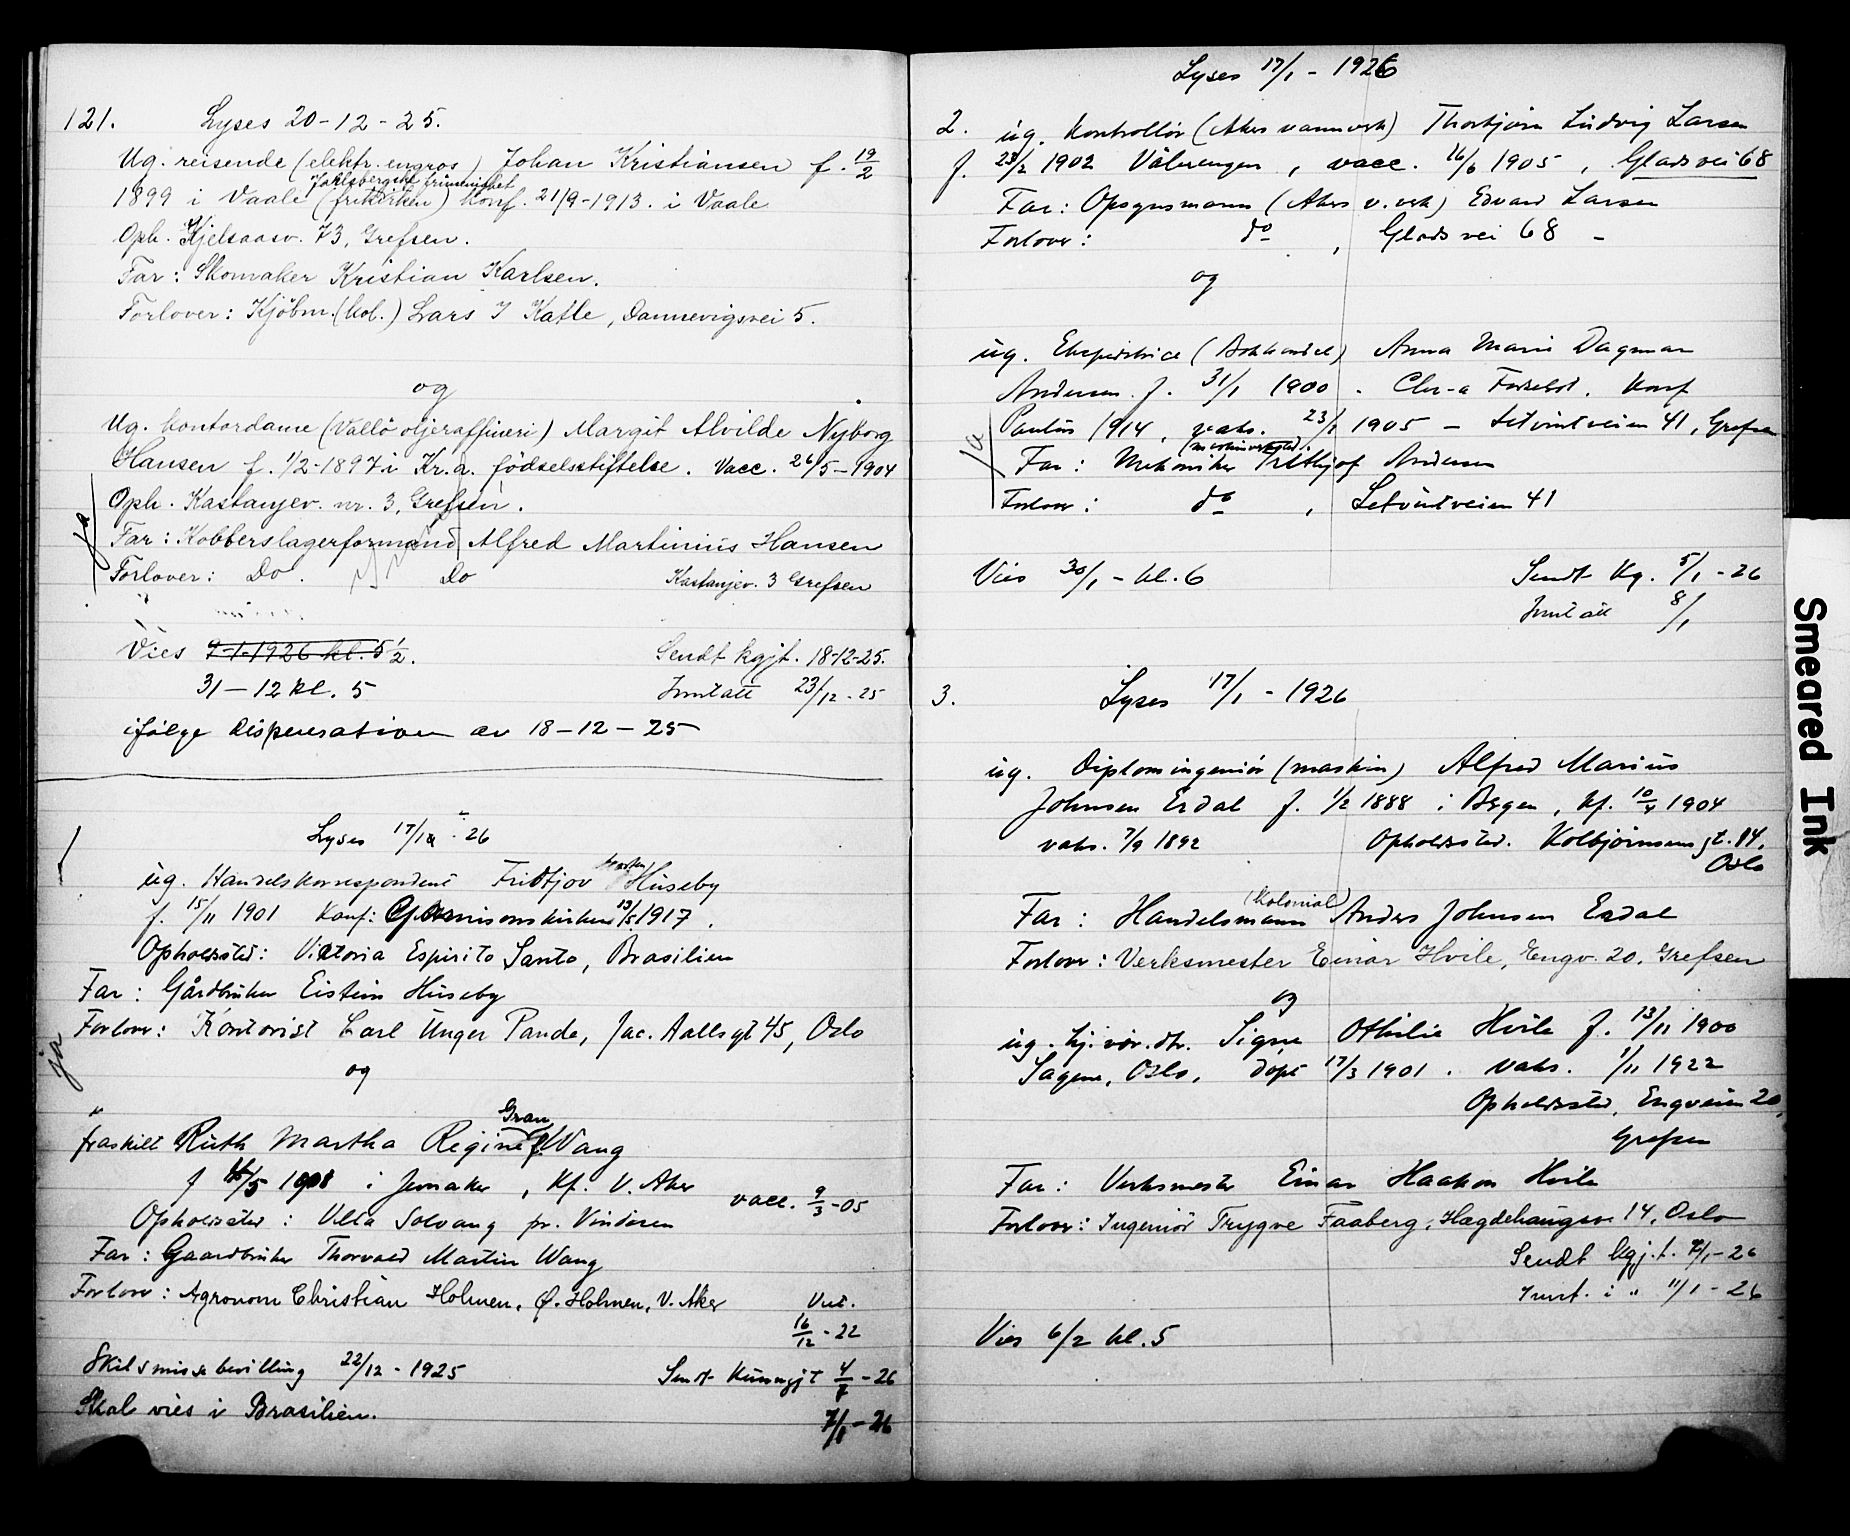 121. Lyses 20-12-25.
Ug. reisende (elektr. engros) Johan Kristiansen f. 19/2
Jarlsbergske frimenighet
1899 i Vaale (frikirken) konf. 21/9-1913. i Vaale
Oph. Kjelsaasv. 73, Grefsen.
Far: Skomaker Kristian Karlsen.
Forlover: Kjöbm. (kol.) Lars J Katle, Dannevigsvei 5.
og
Ug. kontordame (Vallö oljeraffineri) Margit Alvilde Nyborg
Hansen f. 1/2-1897 i Kr.a. födselsstiftelse. Vacc. 26/5-1904
Oph. Kastanjev. nr. 3, Grefsen.
ja
Far: Kobberslagerformand Alfred Martinius Hansen
Forlover: Do. Do Kastanjev. 3 Grefsen
Vies 9-1-1926 kl. 5 1/2. Sendt kgjt. 18-12-25.
31-12 kl. 5 Inntatt 23/12-25
ifölge Dispensation av 18-12-25
Lyses 17/1 - 26
ug. Handelskorrespondent Fridtjov Huseby
f. 15/11 1901 Konf: Garnisonskirken 1917.
Opholdssted: Victoria Espirito Santo, Brasilien
Far: Gårdbruker Eistein Huseby
Forlover: Kontorist Carl Unger Pande, Jac. Aallsgt 45, Oslo
ja
og
Gran
fraskilt Ruth Martha Regine f. Wang
f i Jevnaker, Kf. V. Aker vacc. 9/3-05
Opholdssted: Villa Solvang pr. Vinderen
Far: Gaardbruker Thorvald Martin Wang
Forlover: Agronom Christian Holmen, Ø. Holmen, V. Aker
16/12-22
Skilsmissebevilling 22/12-1925 Sendt Kunngjt -26
Skal vies i Brasilien. 7/1-26
Lyses 17/1 - 1926
2. ug. Kontrollör (Akers vannverk) Thorbjörn Ludvig Larsen
f. 23/2 1902 Vålerengen, vacc. 16/6 1905, Glads vei 68
Far: Opsynsmann (Akers v.verk) Edvard Larsen
Forlover: do, Glads vei 68 -
og
ug. Ekspeditrice (Bokhandel) Anna Marie Dagmar
Andersen f. 31/1 1900. Chr-a Födselst. Konf
Paulus 1914, vaks. 23/1 1905 - Setviutveien 41, Grefsen
ja
Far: Mekaniker Frithjof Andersen
Forlover: do, Setviutveien 41
Vies 30/1 - kl. 6 Sendt Kg. 5/1-26
Inntatt 8/1
3. Lyses 17/1 - 1926
ug. Diplomingeniör (maskin) Alfred Marius
Johnsen Erdal f. 1/2 1888 i Bergen, kf. 10/4 1904
vaks. 7/9 1892 Opholdssted. Kolbjörnsens gt. 14,
Oslo
(Kolonial)
Far: Handelsmann Anders Johnsen Erdal
Forlover: Verksmester Einar Hvile, Engv. 20, Grefsen
og
ug. hj.vær. dtr. Signe Othilie Hvile f. 13/11 1900
Sagene, Oslo, döpt 17/3 1901. vaks. 1/11 1922
Opholdssted, Engveien 20,
Grefsen
Far: Verksmester Einar Haakon Hvile
Forlover: Ingeniör Trygve Faaberg, Hægdehaugsv 14, Oslo
Sendt kgj.t. 7/1-26
Innt. i " 11/1-26
Vies 6/2 kl. 5
Smeared Ink